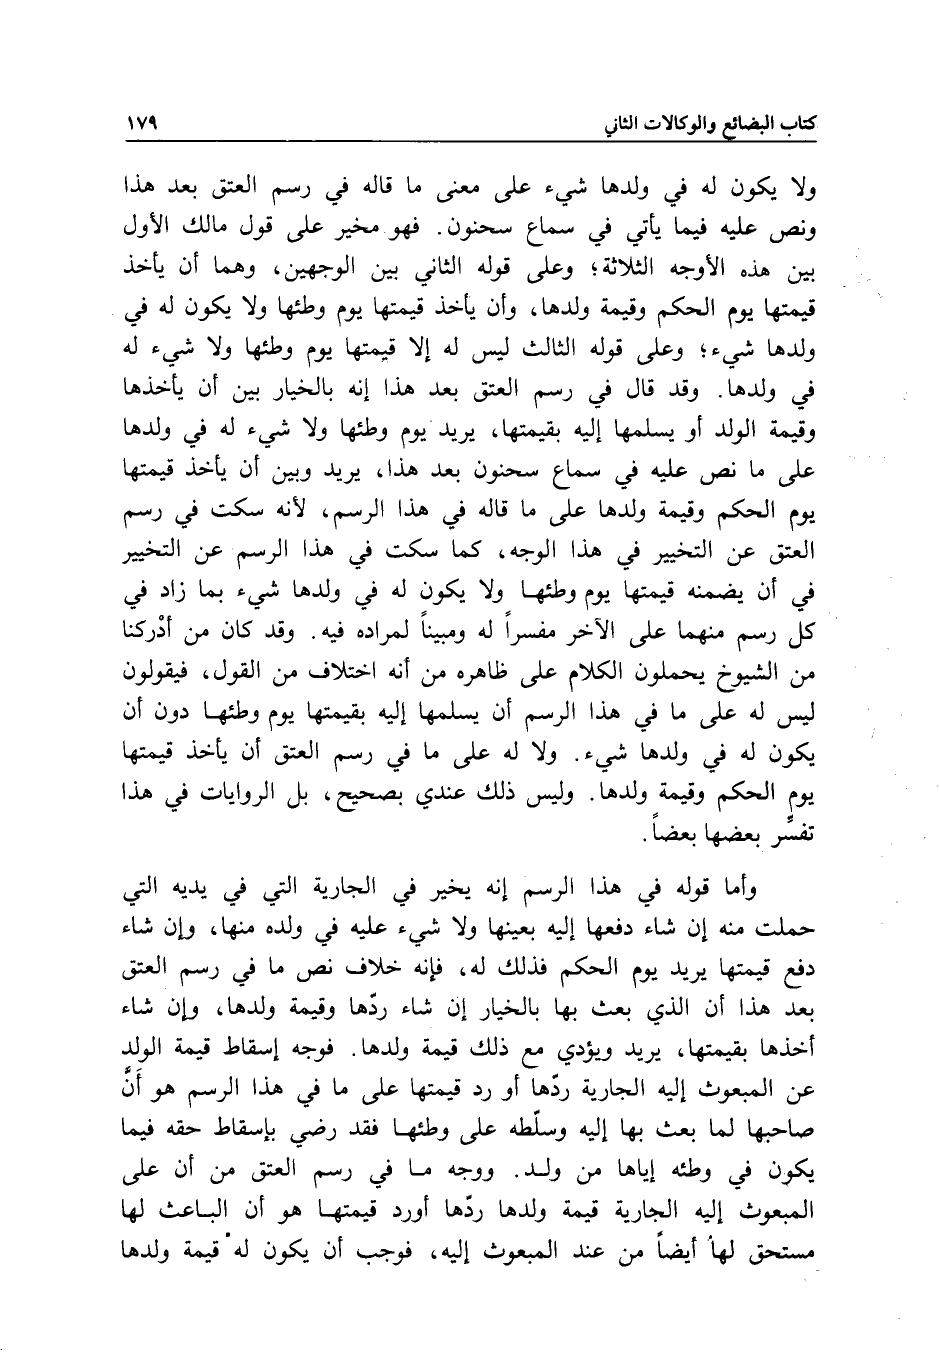 كتاب البضائع والوكالات الثاني ١٧٩
ولا يكون له في ولدها شيء على معنى ما قاله في رسم العتق بعد هذا
ونص عليه فيما يأتي في سماع سحنون. فهو مخير على قول مالك الأول
بين هذه الأوجه الثلاثة؛ وعلى قوله الثاني بين الوجهين، وهما أن يأخذ
قيمتها يوم الحكم وقيمة ولدها، وأن يأخذ قيمتها يوم وطئها ولا يكون له في
ولدها شيء؛ وعلى قوله الثالث ليس له إلا قيمتها يوم وطئها ولا شيء له
في ولدها. وقد قال في رسم العتق بعد هذا إنه بالخيار بين أن يأخذها
وقيمة الولد أو يسلمها إليه بقيمتها، يريد يوم وطئها ولا شيء له في ولدها
على ما نص عليه في سماع سحنون بعد هذا، يريد وبين أن يأخذ قيمتها
يوم الحكم وقيمة ولدها على ما قاله في هذا الرسم، لأنه سكت في رسم
العتق عن التخيير في هذا الوجه، كما سكت في هذا الرسم عن التخيير
في أن يضمنه قيمتها يوم وطئها ولا يكون له في ولدها شيء بما زاد في
كل رسم منهما على الآخر مفسراً له ومبيناً لمراده فيه. وقد كان من أدْركنا
من الشيوخ يحملون الكلام على ظاهره من أنه اختلاف من القول، فيقولون
ليس له على ما في هذا الرسم أن يسلمها إليه بقيمتها يوم وطئها دون أن
يكون له في ولدها شيء. ولا له على ما في رسم العتق أن يأخذ قيمتها
يوم الحكم وقيمة ولدها. وليس ذلك عندي بصحيح، بل الروايات في هذا
تفسِّر بعضها بعضاً.
وأما قوله في هذا الرسم إنه يخير في الجارية التي في يديه التي
حملت منه إن شاء دفعها إليه بعينها ولا شيء عليه في ولده منها، وإن شاء
دفع قيمتها يريد يوم الحكم فذلك له، فإنه خلاف نص ما في رسم العتق
بعد هذا أن الذي بعث بها بالخيار إن شاء ردّها وقيمة ولدها، وإن شاء
أخذها بقيمتها، يريد ويؤدي مع ذلك قيمة ولدها. فوجه إسقاط قيمة الولد
عن المبعوث إليه الجارية ردّها أو رد قيمتها على ما في هذا الرسم هو أنَّ
صاحبها لما بعث بها إليه وسلّطه على وطئها فقد رضي بإسقاط حقه فيما
يكون في وطئه إياها من ولد. ووجه ما في رسم العتق من أن على
المبعوث إليه الجارية قيمة ولدها ردّها أورد قيمتها هو أن الباعث لها
مستحق لها أيضاً من عند المبعوث إليه، فوجب أن يكون له قيمة ولدها